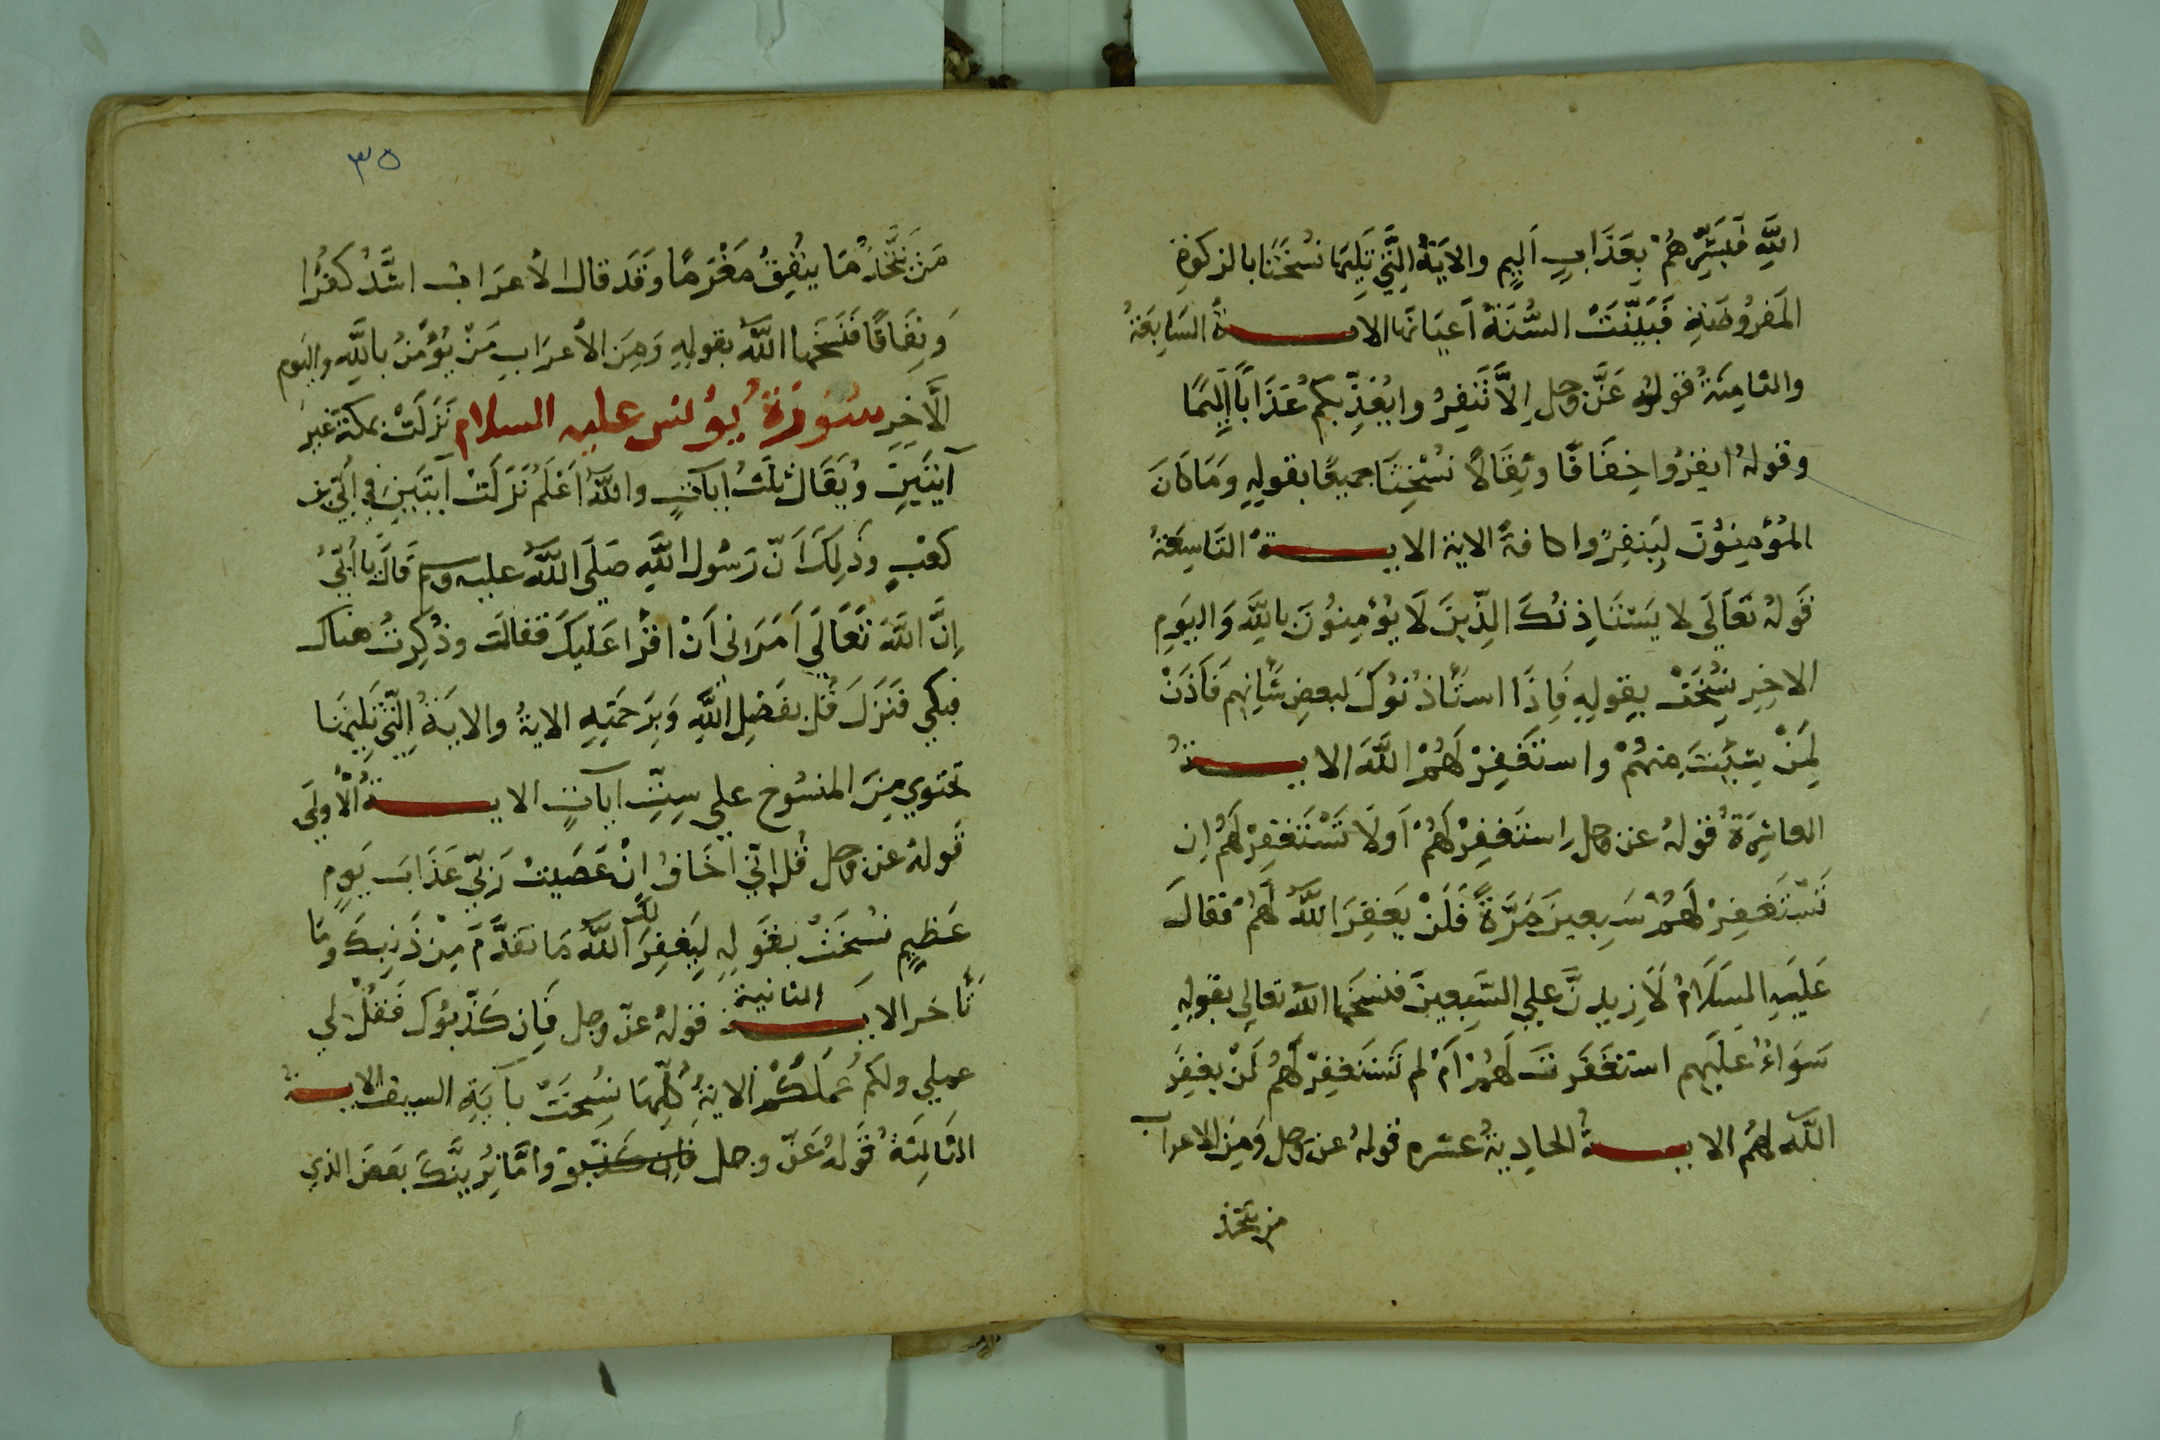 اللَّهِ فَبَشِّرْهُمْ بِعَذَابٍ اَلِيمٍ والايَةُ الَّتِي تَلِيهَا نُسْخَتَا بالزكوةِ
المَفرُوضَةِ فَبَيَّنَتْ السُّنَةُ اَعيَانَها الايـــة السَابِعَةُ
والثامِنَةُ قَولهُ عَزَّ وجل اِلاَّ تَنفِرُوا يُعَذِّبكُم عَذَاباً اَلِيمًا
وقولهُ انفِرُوا خِفَافًا وثِقَالاً نُسْخِتَا جميعًا بقولِهِ وَمَا كَانَ
المُؤمِنُونَ لِيَنفِرُوا كافةً الاية الايـــة التَاسِعَةُ
قَولهُ تَعَالَي لا يَستَاذِنُكَ الذِّينَ لاَ يُؤمِنُونَ بِاللَّهِ وَاليَومِ
الاخِرِ نُسِخَتْ بِقولِهِ فَاِذَا استَأذنُوكَ لبعضِ شَأنِهِم فَأذَنْ
لِمَنْ شِئتَ مِنهُمْ واستَغفِرْ لَهُمْ اللَّهَ الايـــةُ
العاشِرَةُ قولهُ عز وجل اِستَغفِرْ لَهُمْ اَو لاَ تَسْتَغفِرْ لَهُمْ اِن
تَسْتَغفِرْ لَهُمْ سَبعِينَ مَرَّةً فَلَنْ يَغفِرَ اللَّهُ لَهُمْ فقالَ
عَلَيهِ السَلاَمُ لاَزِيدنَّ علي السَّبعِينَ فنسخَها اللهُ تعالي بقولِهِ
سَوَاءٌ عَلَيهِم استغفَرتَ لَهُمْ اَمْ لم تَستَغفِرْ لَهُمْ لَنْ يغفِرَ
اللَّه لهُم الايـــةُ الحادِيةُ عشره قولهُ عز وجل وَمِنَ الاعراب
من يتخذ
٣٥
مَن يَتَّخِذُ مَا يُنفِقُ مَغْرَمًا وَقَد قال الأعرَابُ اشَدُّ كُفرًا
وَنِفَاقًا فَنَسَخَها اللَّهُ بقولِهِ وَمِنَ الأعرَابِ مَنْ يُؤمنُ باللَّهِ واليَوم
الآخِرِ سُورَةُ يُونس عليه السلام نَزَلَتْ بمكةَ غيرَ
آيتَينِ وُيقَال ثَلَثُ اياتٍ واللَّهُ اَعْلَمُ نَزَلَتْ آيتَينِ في اُبَيِّ بن
كعبٍ وذَلِكَ اَنّ رَسُول اللَّهِ صَلَي اللَّهُ عليه وسم قَالَ يا اُبَيُّ
اِنَّ اللَّهَ تَعَالَي اَمَرَانى اَنْ اقرأ عَليكَ فقالت وذُكِرتُ هناك
فبكي فَنَزَلَ قُل بفَضلِ اللَّهِ وَبِرَحمَتِهِ الايةُ والايَةُ الّتَي تَلِيهَا
تحتوي مِنَ المنسُوخ علي سِتّ اياتٍ الايـــةُ الأولَي
قَولهُ عز وجل قُل اِنّي اَخَافُ اِنْ عَصَيتُ رَبّي عَذَابَ يَومٍ
عَظِيمٍ نسُخَتْ بقَولِهِ لِيَغفِرَ لَكَ اللَّهُ مَا تقدَّمَ مِنْ ذَنبِكَ ومَا
تَأخر الايـــة الثانية قولهُ عزّ وجل فَاِن كَذّبوُكَ فَقُلْ لي
عملي ولكم عَملُكُمْ الايةُ كُلّهَا نُسِخَتْ بآيَةِ السيف الايـــةُ
الثالِثَةُ قَولهُ عَزّ وجل فان كذبو وامَّا نُرِيَنَّكَ بَعضَ الذي